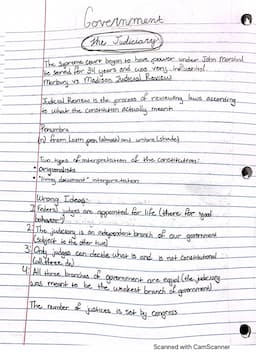 Government
The Judiciary
The supreme court began to have power under John Marshal
he served for 34 years and was very influential.
Marbury vs Madison Judicial Review
Judicial Review is the process of reviewing laws according
to what the constitution actually meant
Penumbra
(n) from Latin paen (almost) and umbra (shade)
Two types of interpretation of the constitution:
• Originalists
• "living document" interpretation
Wrong Ideas:
1) Federal judges are appointed for life (there for "good
behavior")
2) The judiciary is an independent branch of our government
(subject to the other two)
3) Only judges can decide what is and is not constitutional
(all three do)
4) All three branches of government are equal (the judiciary
was meant to be the weakest branch of government)
The number of justices is set by congress
Scanned with CamScanner